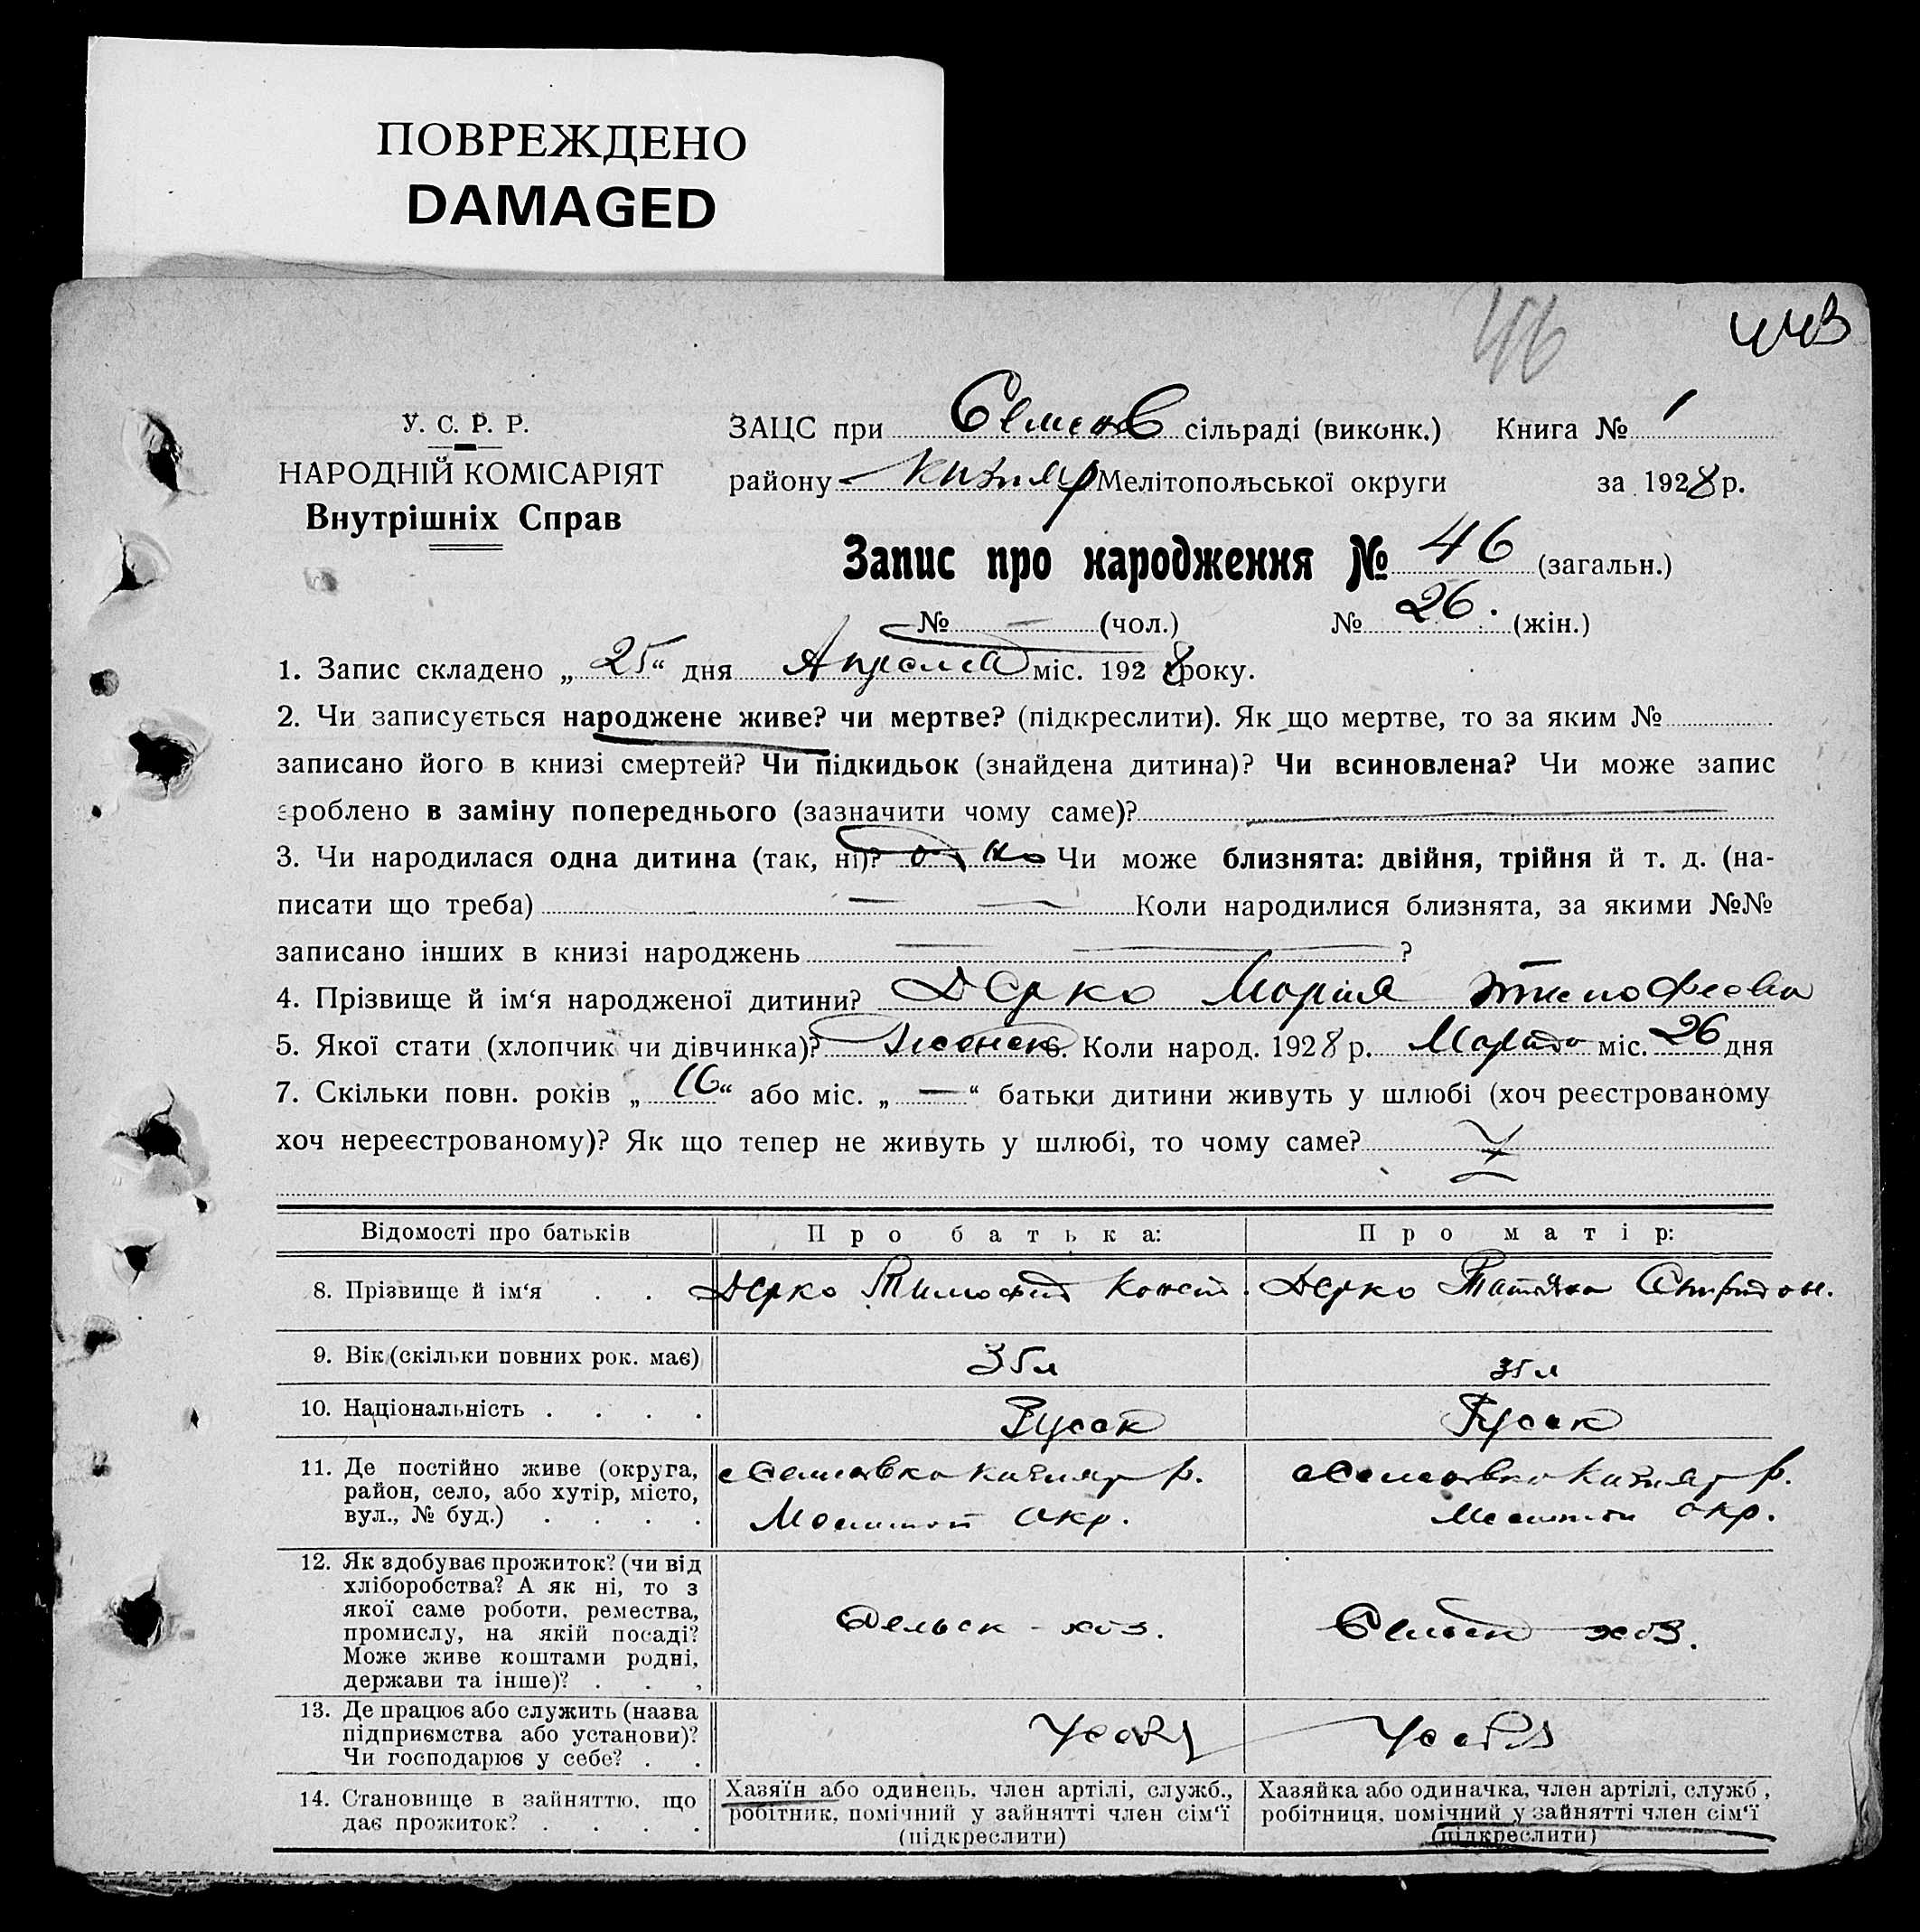 ПОВРЕЖДЕНО
DAMAGED
46
443
У. С. Р. Р.
НАРОДНІЙ КОМІСАРІЯТ
Внутрішніх Справ
ЗАЦС при Семенов сільраді (виконк.) Книга № 1
району Кизияр Мелітопольської округи за 1928 р.
Запис про народження № 46 (загальн.)
№ — (чол.) № 26. (жін.)
1. Запис складено „25“ дня Апреля міс. 1928 року.
2. Чи записується народжене живе? чи мертве? (підкреслити). Як що мертве, то за яким №
записано його в книзі смертей? Чи підкидьок (знайдена дитина)? Чи всиновлена? Чи може запис
зроблено в заміну попереднього (зазначити чому саме)? —
3. Чи народилася одна дитина (так, ні)? одно Чи може близнята: двійня, трійня й т. д. (на-
писати що треба) — — Коли народилися близнята, за якими №№
записано інших в книзі народжень — — ?
4. Прізвище й ім‘я народженої дитини? Дерко Мария Тимофеевна
5. Якої стати (хлопчик чи дівчинка)? Женск 6. Коли народ. 1928 р. Марта міс. 26 дня
7. Скільки повн. років „16“ або міс. „—“ батьки дитини живуть у шлюбі (хоч реєстрованому
хоч нереєстрованому)? Як що тепер не живуть у шлюбі, то чому саме?
Відомості про батьків Про батька: Про матір:
8. Прізвище й ім‘я . . Дерко Тимофей Конст. Дерко Татьяна Спиридон.
9. Вік (скільки повних рок. має) 35 л 35 л
10. Національність . . . . Русск Русск
11. Де постійно живе (округа,
район, село, або хутір, місто,
вул., № буд.) . . . .
Семеновка Кизияр р.
Мелитоп окр.
Семеновка Кизияр р.
Мелитоп окр.
12. Як здобуває прожиток? (чи від
хліборобства? А як ні, то з
якої саме роботи, ремества,
промислу, на якій посаді?
Може живе коштами родні,
держави та інше)? . . .
Сельск-хоз.
Сельск хоз.
13. Де працює або служить (назва
підприємства або установи)?
Чи господарює у себе? . .
У себя
У себя
14. Становище в зайняттю, що
дає прожиток? . . . .
Хазяїн або одинець, член артілі, служб.,
робітник, помічний у зайнятті член сім‘ї
(підкреслити)
Хазяйка або одиначка, член артілі, служб,
робітниця, помічний у зайнятті член сім‘ї
(підкреслити)